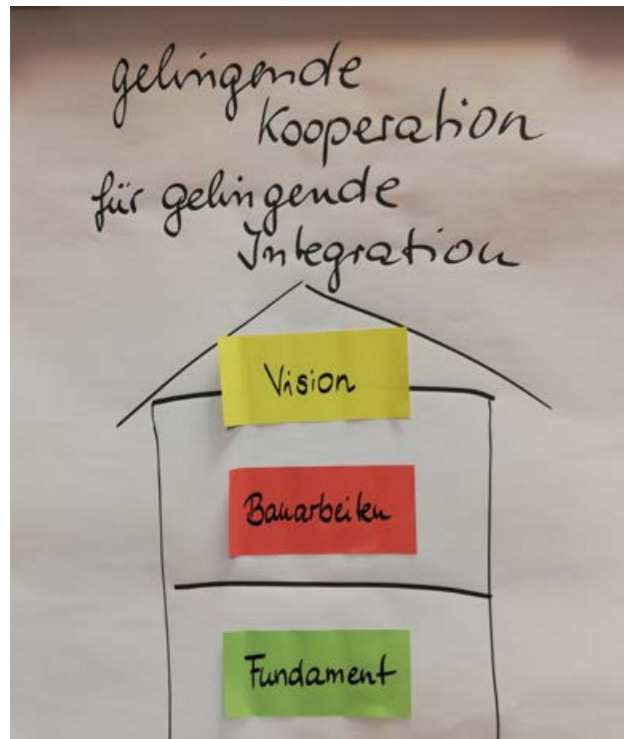 gelingende
Kooperation
für gelingende
Integration
Vision
Bauarbeiten
Fundament